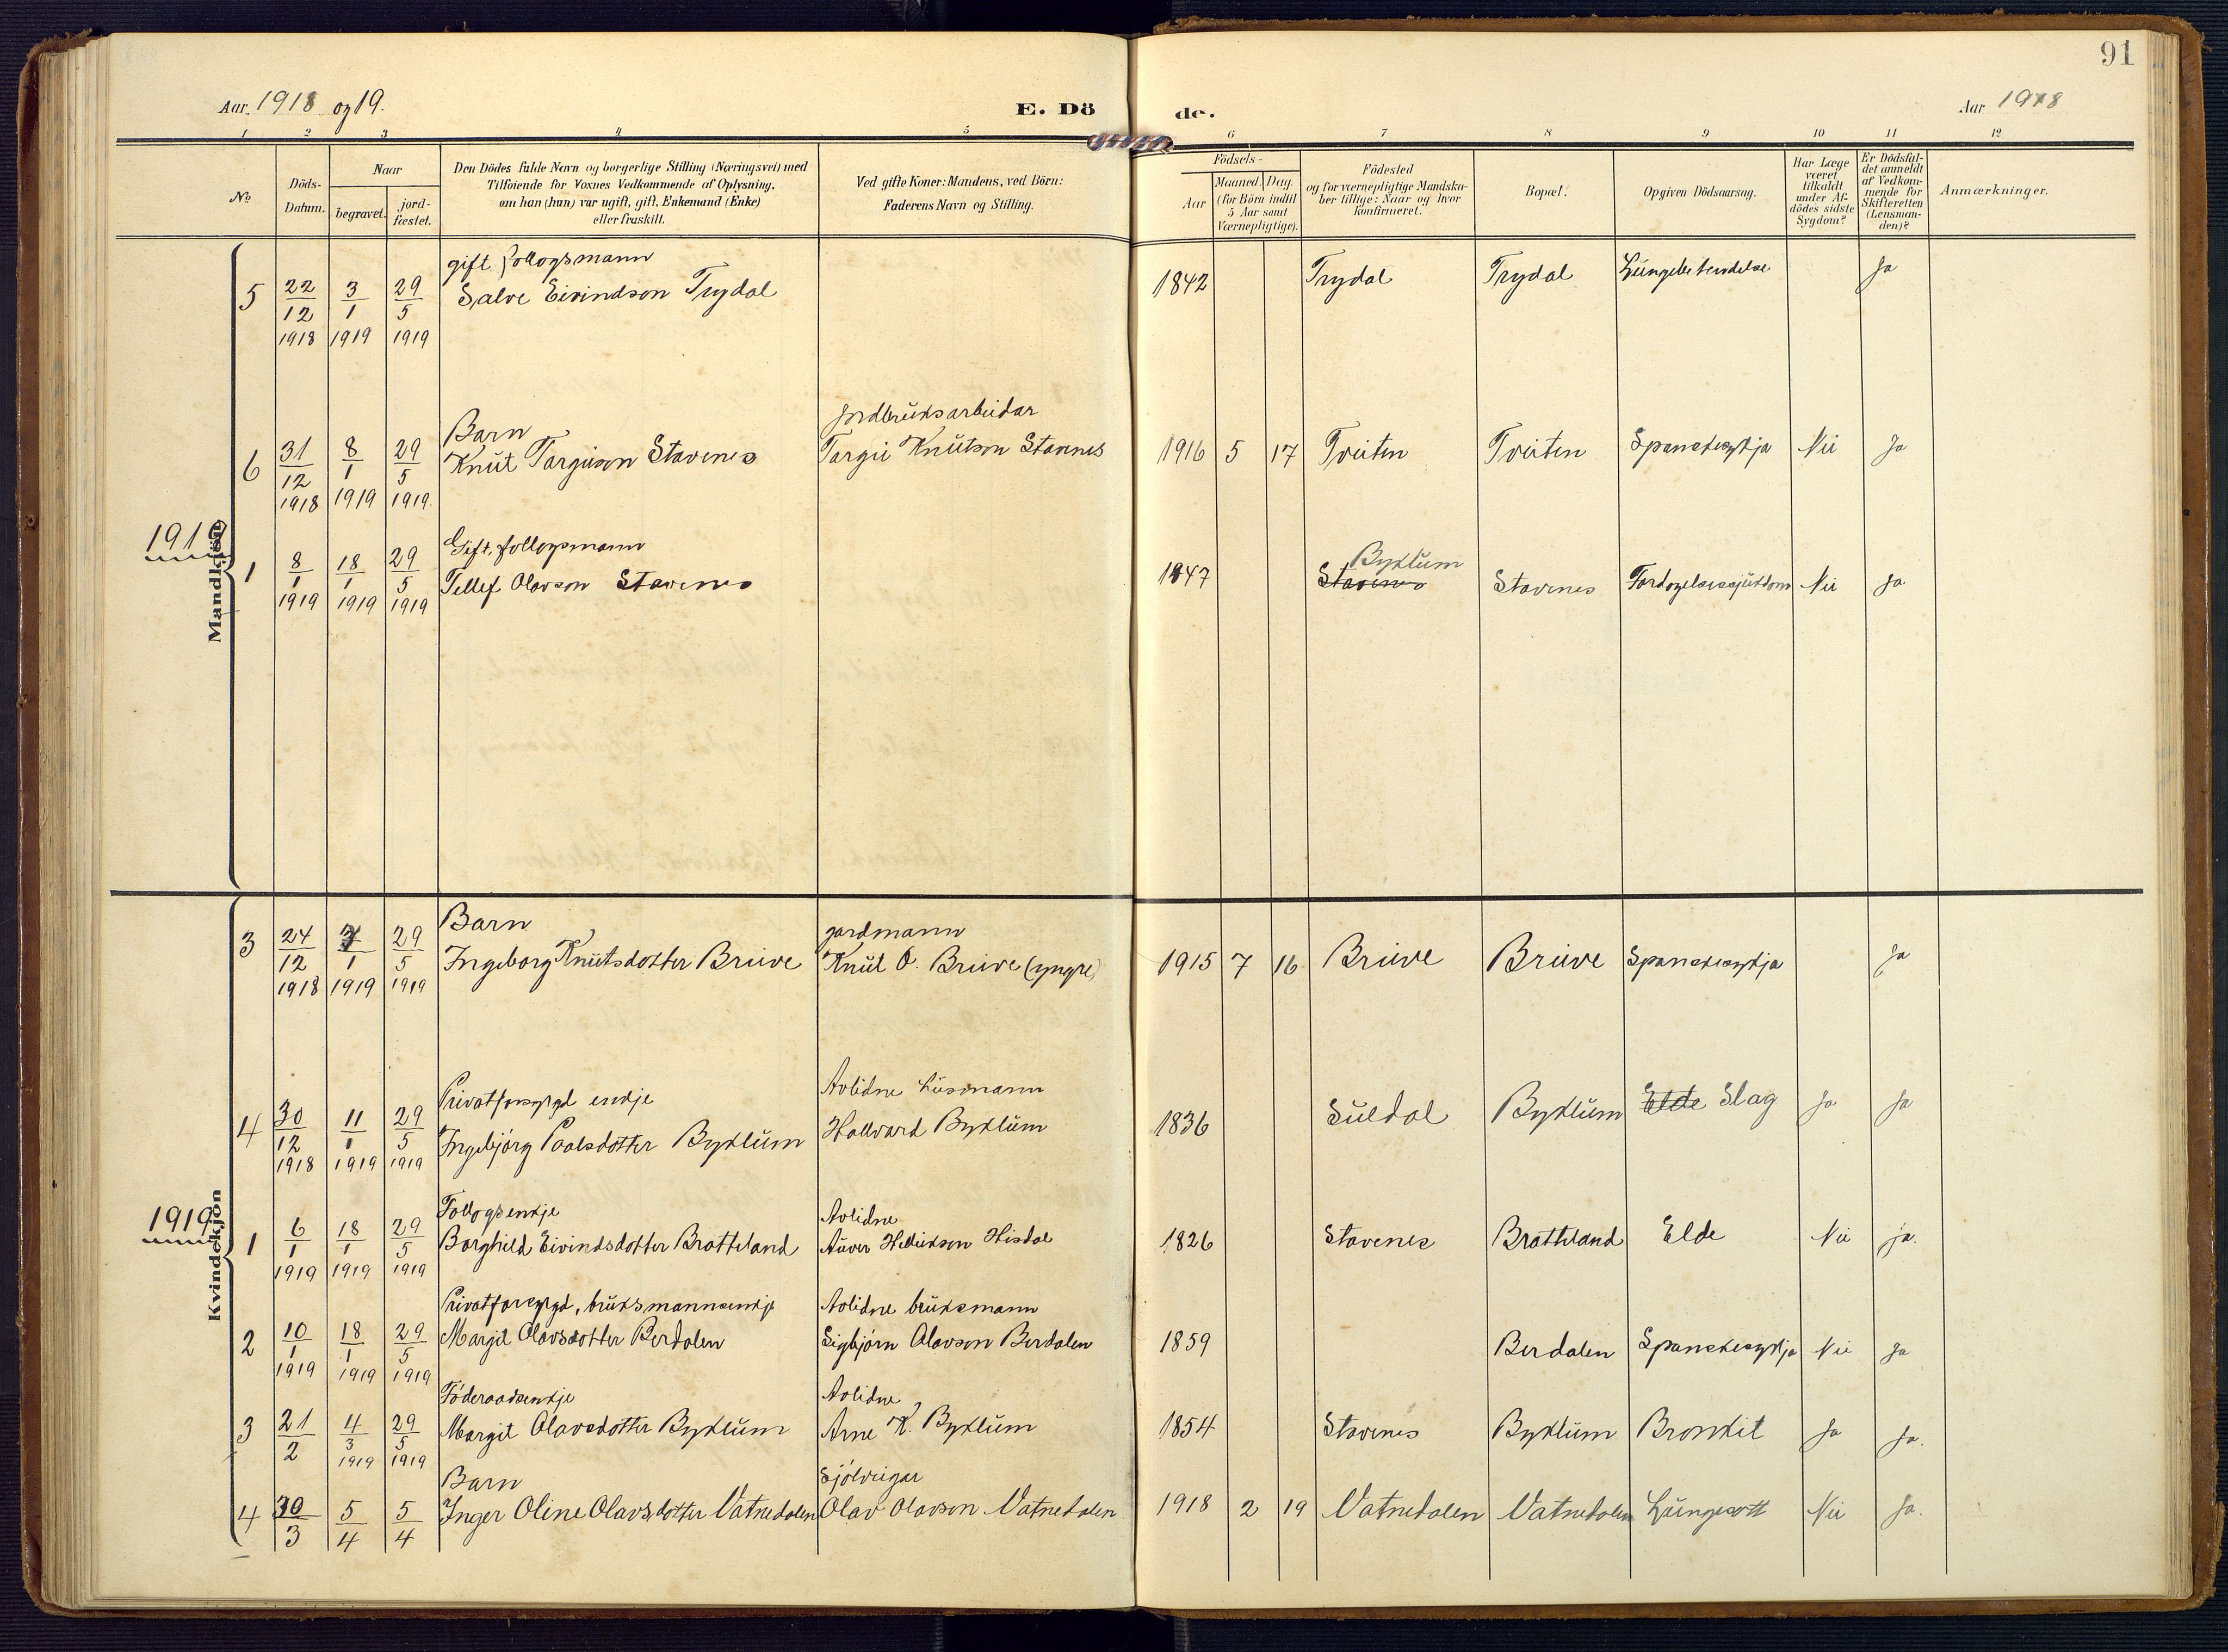 91
Aar. 1918 og 19.
E. Dö
de.
Aar 1918
1 2 3 4 5 6 7 8 9 10 11 12
No
Döds-
Datum.
Naar
begravet.
jord-
fæstet.
Den Dödes fulde Navn og borgerlige Stilling (Næringsvei) med
Tilföiende for Voxnes Vedkommende af Oplysning,
om han (hun) var ugift, gift, Enkemand (Enke)
eller fraskilt.
Ved gifte Koner: Mandens, ved Börn:
Faderens Navn og Stilling.
Födsels-
Aar
Maaned. Dag.
(for Börn indtil
5 Aar samt
Værnepligtige).
Födested
og for værnepligtige Mandska-
ber tillige: Naar og hvor
konfirmeret.
Bopæl.
Opgiven Dödsaarsag.
Har Læge
været
tilkaldt
under Af-
dödes sidste
Sygdom?
Er Dödsfal-
det anmeldt
af Vedkom-
mende for
Skifteretten
(Lensman-
den)?
Anmærkninger.
Mandkjön
gift, follogsmann
5 22/12 1918 3/1 1919 29/5 1919 Salve Eivindson Trydal 1842 Trydal Trydal Lungebetendelse Ja
Barn jordbruksarbeidar
6 31/12 1918 8/1 1919 29/5 1919. Knut Targeison Stavenes Targei Knutson Stavenes 1916 5 17 Tveiten Tveiten Spanskesykja Nei Ja
1919
Gift, follogsmann Byklum
1 8/1 1919 18/1 1919 29/5 1919 Tellef Olavson Stavenes 1847 Stavenes Stavenes Nei Ja
Kvindekjön
Barn gardmann
3 24/12 1918 7/1 1919 29/5 1919 Ingeborg Knutsdotter Bruve Knut O. Bruve (yngre) 1915 7 16 Bruve Bruve Spanskesykja Ja
Privatforsyrgd enkje Avlidne husmann
4 30/12 1918 11/1 1919 29/5 1919 Ingebjörg Paalsdotter Byklum Hallvard Byklum 1836 Suldal Byklum Elde Slag Ja Ja
1919
Follogsenkje Avlidne
1 6/1 1919 18/1 1919 29/5 1919 Borghild Eivindsdotter Bratteland Auver Hellikson Hisdal 1826 Stavenes Bratteland Elde Nei ja.
Privatforsyrgd, bruksmannsenkje Avlidne bruksmann
2 10/1 1919 18/1 1919 29/5 1919 Margit Olavsdotter Berdalen Sigbjörn Olavson Berdalen 1859 Berdalen Spanskesykja Nei Ja
Föderaadsenkje Avlidne
3 21/2 4/3 1919 29/5 1919 Margit Olavsdotter Byklum Arne K. Byklum 1854 Stavenes Byklum Bronkit Ja Ja.
Barn Sjölveigar
4 30/3 5/4 5/4 Inger Oline Olavsdotter Vatnedalen Olav Olavson Vatnedalen 1918 2 19 Vatnedalen Vatnedalen Lungesott Nei Ja.